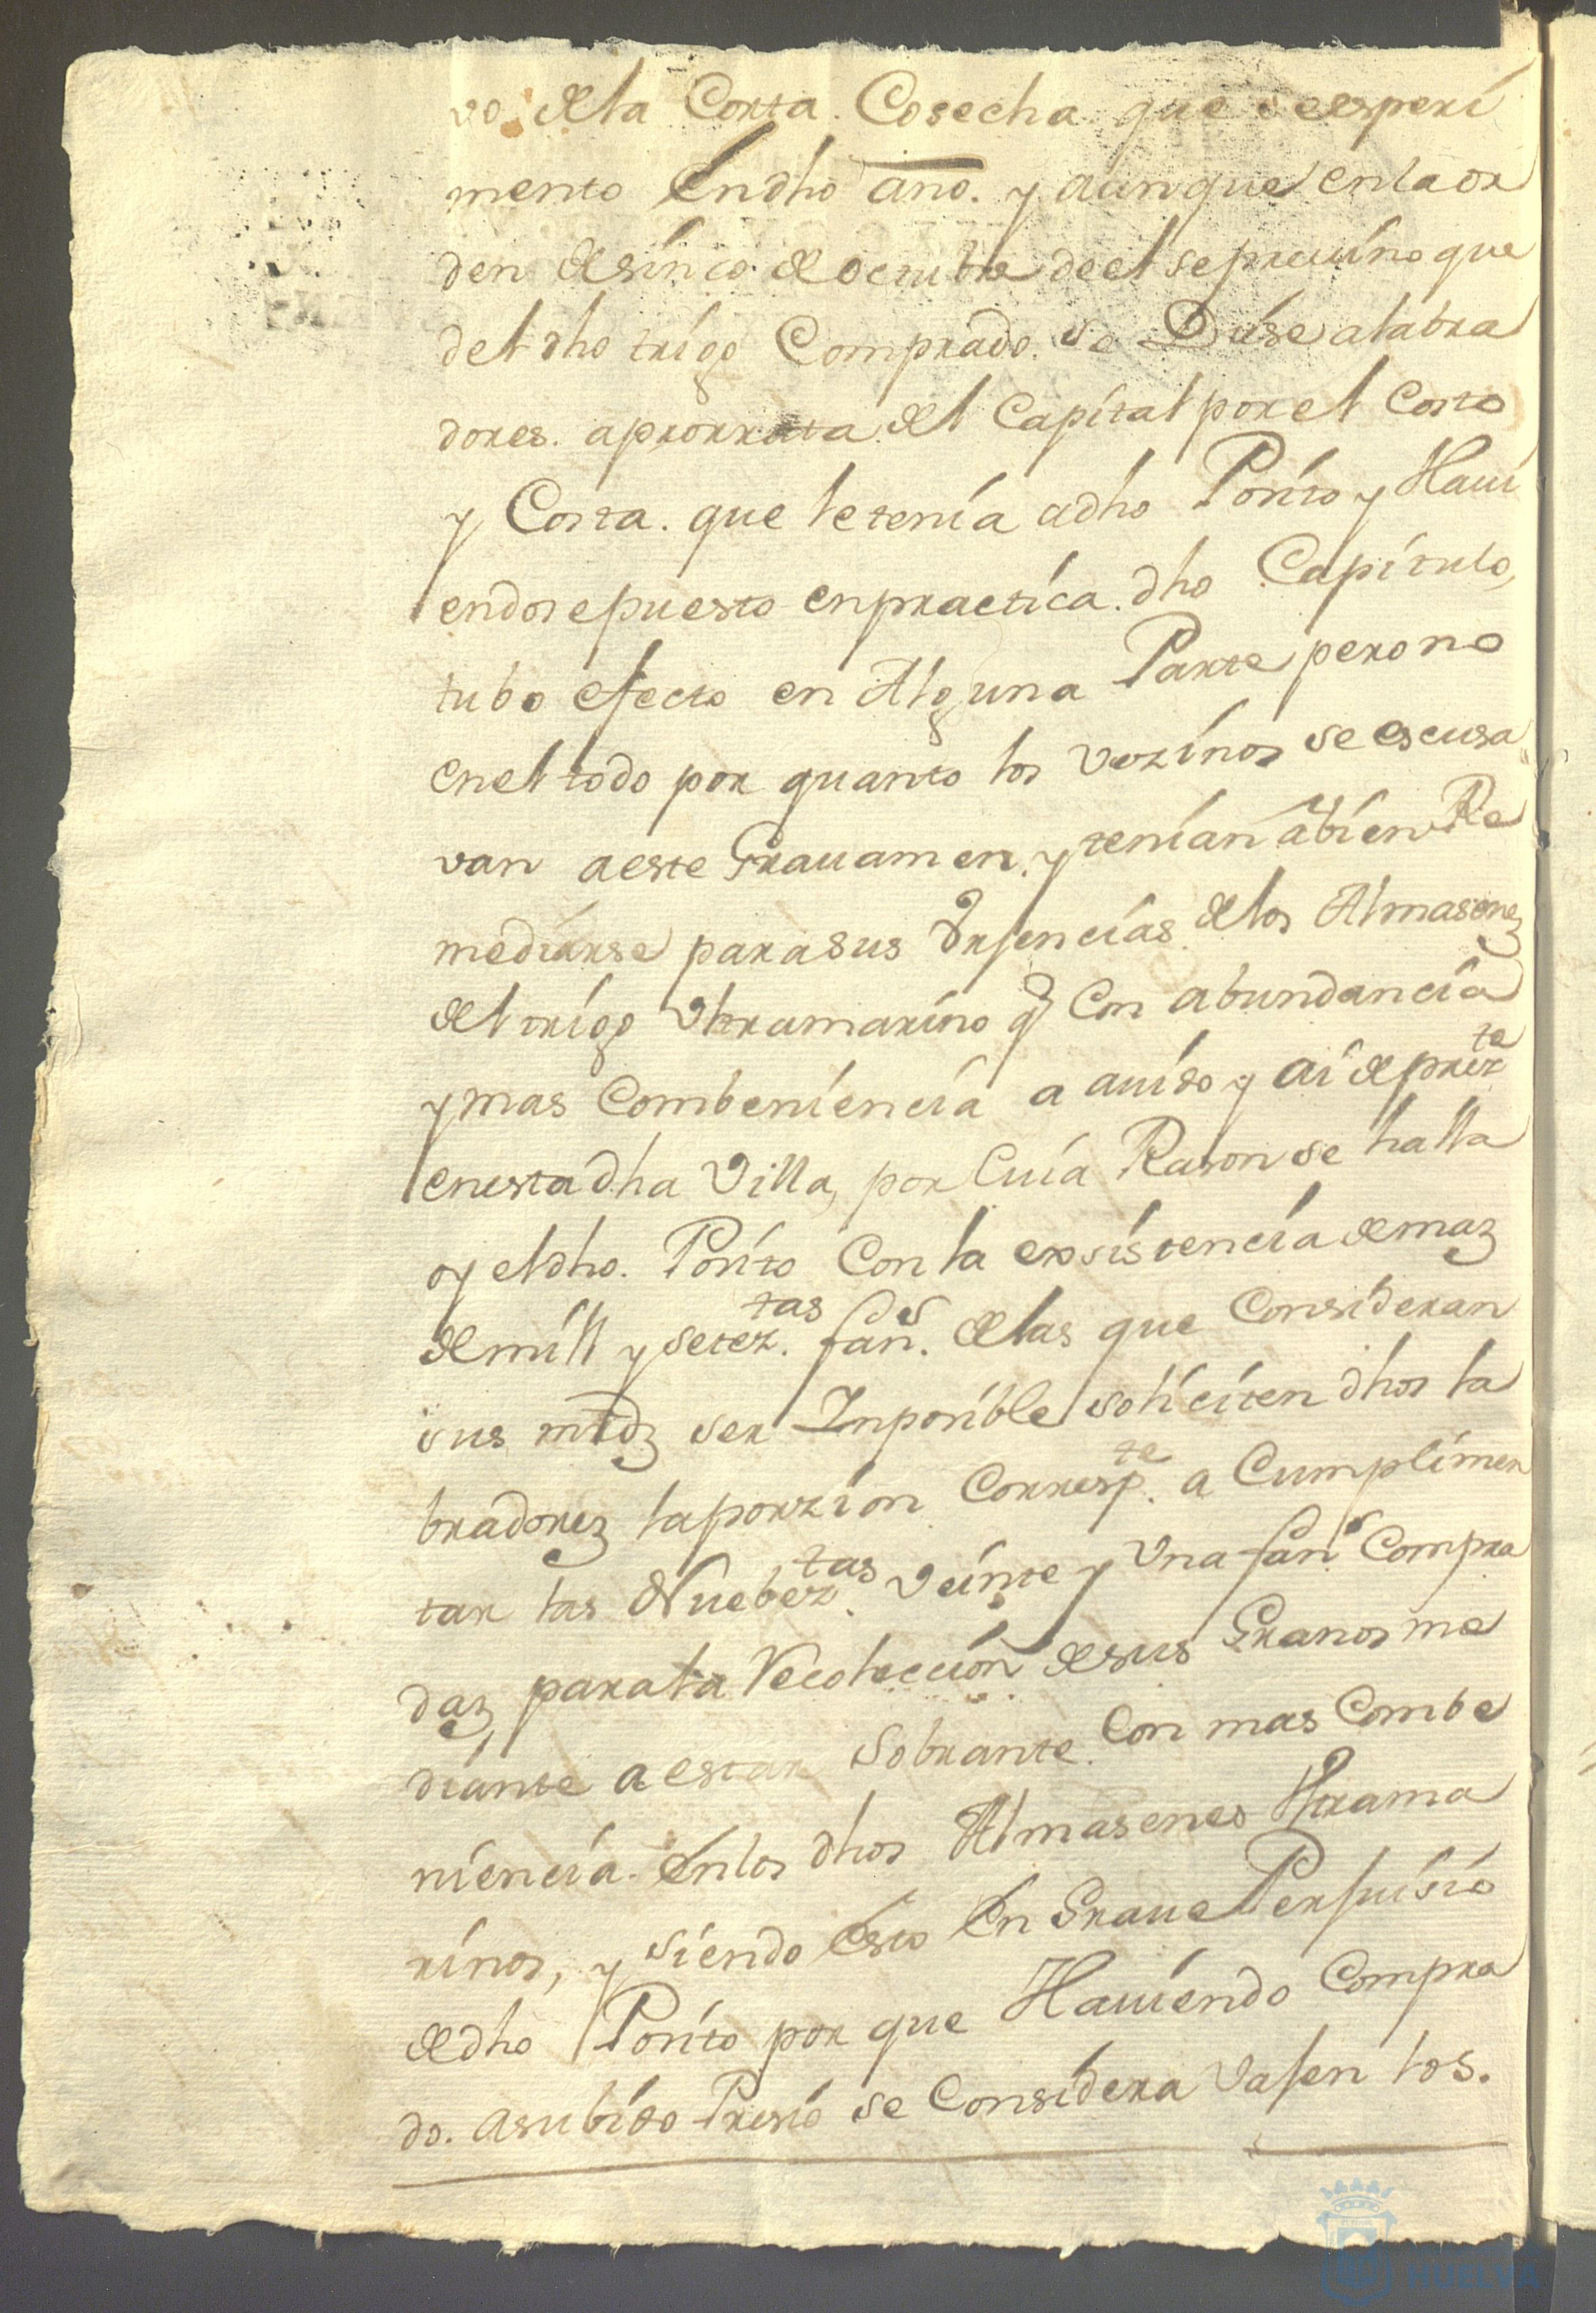 vo. de la Corta. Cosecha que seesperi
mento En dho año. y aunque en la or
den de sinco de octubre de el se previno que
del dho trigo Comprado. se Diese alabra
dores. aprorrata del Capital por el Costo
y Costa. que le tenia a dho Posito y Havi
endose puesto en practica. dho Capitulo,
tubo efecto en Alguna Parte pero no
en el todo por quanto los vezinos se escusa
van a este Gravamen. y tenian a bien Re
mediarse para sus Urjencias de los Almasenes
del trigo Vltramarino q Con abundancia
y mas Combeniencia a avido y ai de prez.te
en esta dha Villa, por Cuia Rason se halla
oy el dho. Posito Con la exsistencia de mas
de mill y setez.tas fan.s de las que Consideran
sus mrds ser Inposible soliciten dhos la
bradores la porzion Corresp.te a Cumplimen
tar las Nuebez.tas veinte y Vna fan.s Compra
das, para la Recoleccion de sus Granos me
diante a estar Sobrante. Con mas Combe
niencia. En los dhos Almasenes Vltrama
rinos, y siendo Esto En Grave Perjuisio
de dho Posito por que Haviendo Compra
do. a subido Presio se Considera Vajen los.
HUELVA